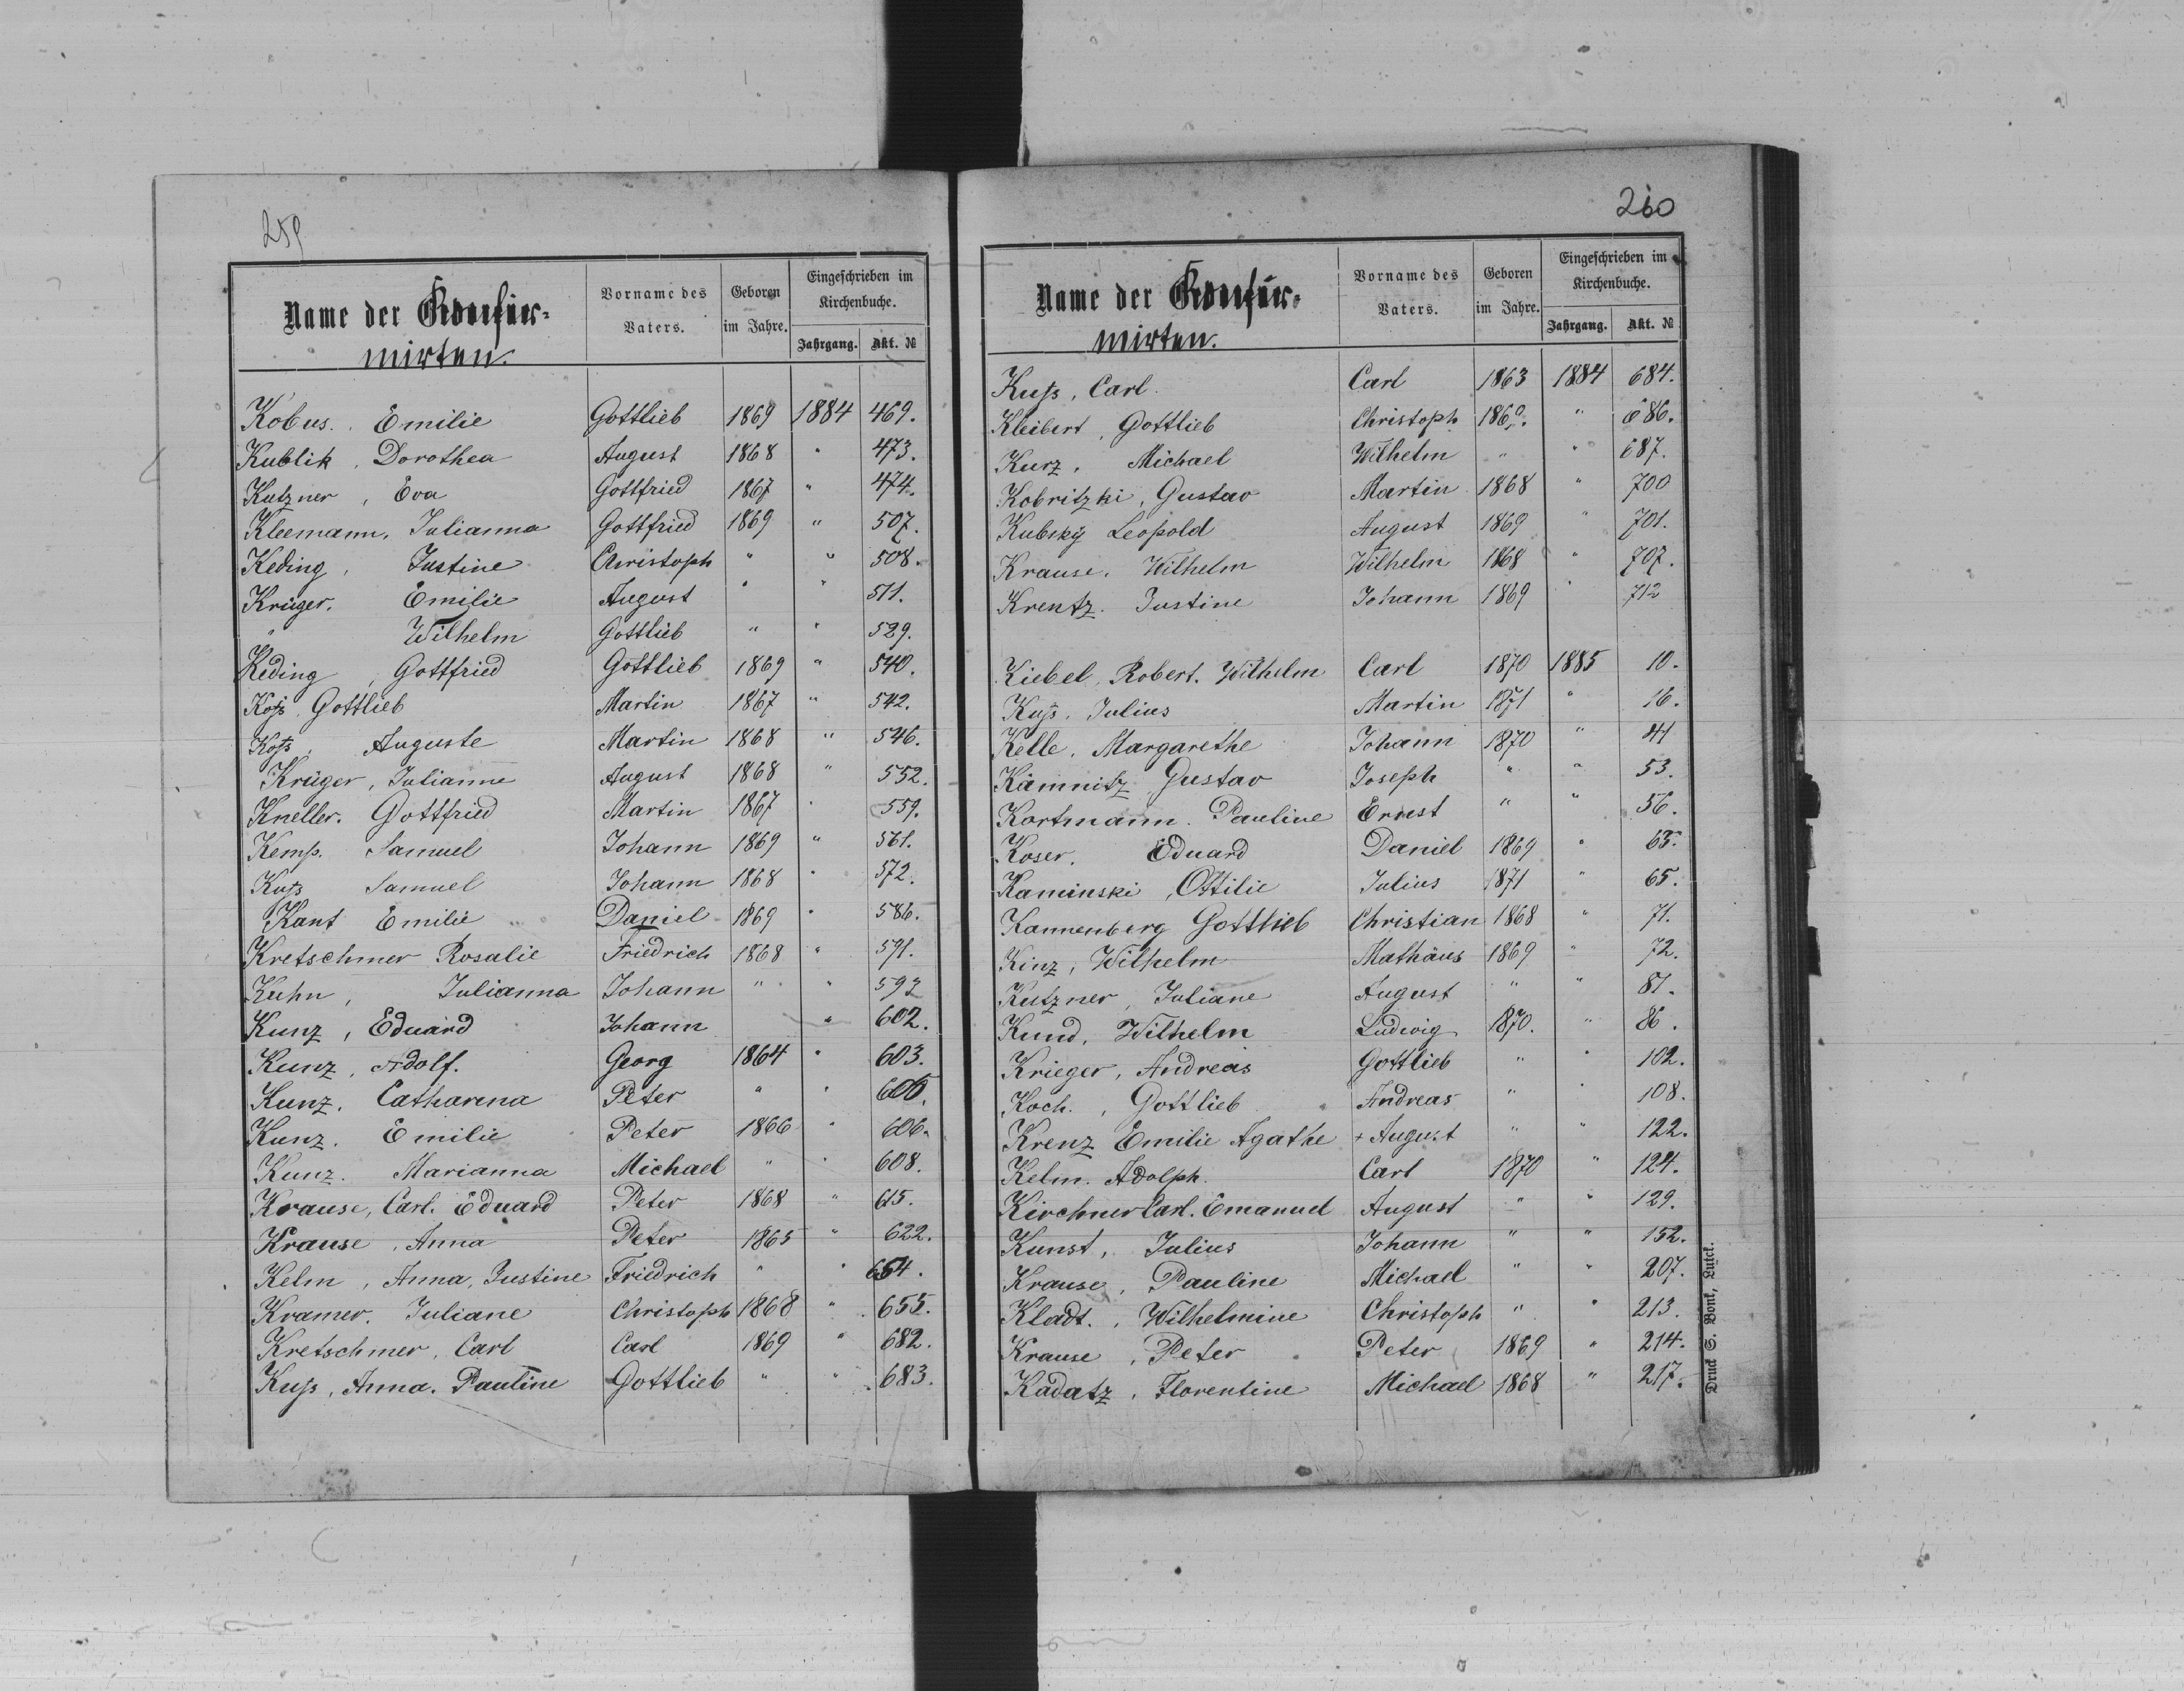 259
Name der Konfir=
mirten.
Vorname des Vaters.
Geboren im Jahre.
Eingeschrieben im Kirchenbuche.
Jahrgang. Akt. №
Kobus. Emilie Gottlieb 1869 1884 469.
Kublik, Dorothea August 1868 " 473.
Kutzner, Eva Gottfried 1867 " 474.
Kleemann, Julianna Gottfried 1869 " 507.
Keding, Justine Christoph " " 508.
Krüger. Emilie August " " 511.
" Wilhelm Gottlieb " " 529.
Keding, Gottfried Gottlieb 1869 " 540.
Koß, Gottlieb Martin 1867 " 542.
Koß, Auguste Martin 1868 " 546.
Krüger, Julianne August 1868 " 552.
Kneller. Gottfried Martin 1867 " 559.
Kemp. Samuel Johann 1869 " 561.
Kuß Samuel Johann 1868 " 572.
Kant Emilie Daniel 1869 " 586.
Kretschmer Rosalie Friedrich 1868 " 591.
Kuhn, Julianna Johann " " 592
Kunz, Eduard Johann " 602.
Kunz, Adolf. Georg 1864 " 603.
Kunz. Catharena Peter " " 606.
Kunz. Emilie Peter 1866 " 606.
Kunz. Marianna Michael " " 608.
Krause, Carl. Eduard Peter 1868 " 615.
Krause, Anna Peter 1865 " 622.
Kelm, Anna, Justine Friedrich " " 654.
Kramer. Juliane Christoph 1868 " 655.
Kretschmer, Carl Carl 1869 " 682.
Kuß, Anna. Pauline Gottlieb " " 683.
260
Name der Konfir=
mirten.
Vorname des Vaters.
Geboren im Jahre.
Eingeschrieben im Kirchenbuche.
Jahrgang. Akt. №
Kuß, Carl. Carl 1863 1884 684.
Kleibert, Gottlieb Christoph " 686.
Kurz, Michael Wilhelm " " 687.
Kobritzki, Gustav Martin 1868 " 700
Kubsky Leopold August 1869 " 701.
Krause. Wilhelm Wilhelm 1868 " 707.
Krentz. Justine Johann 1869 " 712
Kiebel, Robert. Wilhelm Carl 1870 1885 10.
Kuß. Julius Martin 1871 " 16.
Kelle, Margarethe Johann 1870 " 41
Kämnitz Gustav Joseph " " 53.
Kortmann. Pauline Ernest " " 56.
Koser. Eduard Daniel 1869 " 63.
Kaminski, Ottilie Julius 1871 " 65.
Kannenberg Gottlieb Christian 1868 " 71.
Kinz, Wilhelm Mathäus 1869 " 72.
Kutzner, Juliane August " " 81.
Kund, Wilhelm Ludwig 1870. " 86.
Krieger, Andreas Gottlieb " " 102.
Koch., Gottlieb Andreas " " 108.
Krenz Emilie Agathe + August " " 122.
Kelm. Adolph. Carl 1870 " 124.
Kirchner Carl. Emanuel August " " 129.
Kunst, Julius Johann " " 152.
Krause, Pauline Michael " " 207.
Kladt., Wilhelmine Christoph " " 213.
Krause, Peter Peter 1869 " 214.
Kadatz, Florentine Michael 1868 " 217.
Druck S. Bonk, Luck.